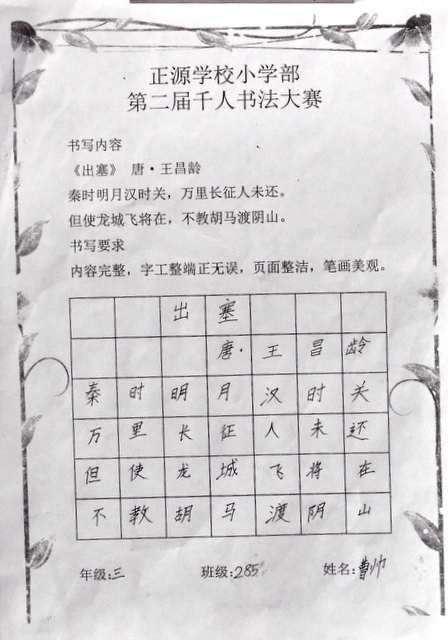 正源学校小学部
第二届千人书法大赛
书写内容
《出塞》 唐·王昌龄
秦时明月汉时关，万里长征人未还。
但使龙城飞将在，不教胡马渡阴山。
书写要求
内容完整，字工整端正无误，页面整洁，笔画美观。
出塞
唐·王昌龄
秦时明月汉时关
万里长征人未还
但使龙城飞将在
不教胡马渡阴山
年级:三 班级:285 姓名:曹帅